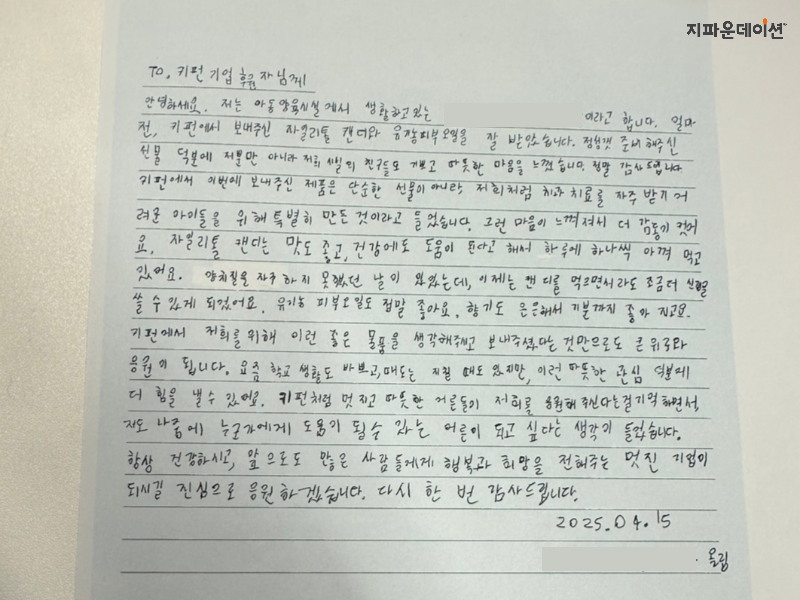 지파운데이션
TO. 키펀 기업 후원자님께
안녕하세요. 저는 아동양육시설에서 생활하고있는 이라고 합니다. 얼마
전, 키펀에서 보내주신 자일리톨 캔디와 유기농피부오일을 잘 받았습니다. 정성껏 준비해주신
선물 덕분에 저뿐만 아니라 저희 시설의 친구들도 기쁘고 따뜻한 마음을 느꼈습니다. 정말 감사드립니다
키펀에서 이번에 보내주신 제품은 단순한 선물이아니라, 저희처럼 치과 치료를 자주 받기 어
려운 아이들을 위해 특별히 만든 것이라고 들었습니다. 그런 마음이 느껴져서 더 감동이 컸어
요. 자일리톨 캔디는 맛도 좋고, 건강에도 도움이 된다고 해서 하루에 하나씩 아껴 먹고
있어요. 양치질을 자주 하지 못했던 날이 있었는데, 이제는 캔디를 먹으면서라도 조금더 신경을
쓸 수 있게 되었어요. 유기농 피부오일도 정말 좋아요. 향기도 은은해서 기분까지 좋아 지고요.
키펀에서 저희를위해 이런 좋은 물품을 생각해주시고 보내주셨다는 것만으로도 큰 위로와
응원이 됩니다. 요즘 학교 생활도 바쁘고, 때로는 지칠 때도 있지만, 이런 따뜻한 관심 덕분에
더 힘을 낼 수 있어요. 키펀처럼 멋지고 따뜻한 어른들이 저희를 응원해 주신다는걸 기억하면서
저도 나중에 누군가에게 도움이 될수 있는 어른이 되고 싶다는 생각이 들었습니다.
항상 건강하시고, 앞으로도 많은 사람들에게 행복과 희망을 전해주는 멋진 기업이
되시길 진심으로 응원하겠습니다. 다시 한 번 감사드립니다.
2025.04.15
. 올림